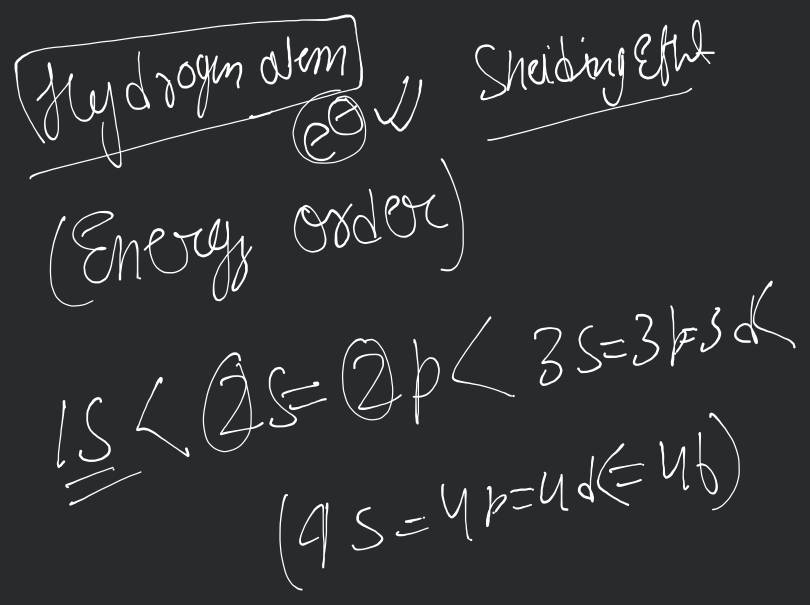 Hydrogen atom
Sheilding Effect
e⊖
(Energy order)
1S < 2S = 2p < 3S = 3p = 3d <
(4S = 4p = 4d = 4f)